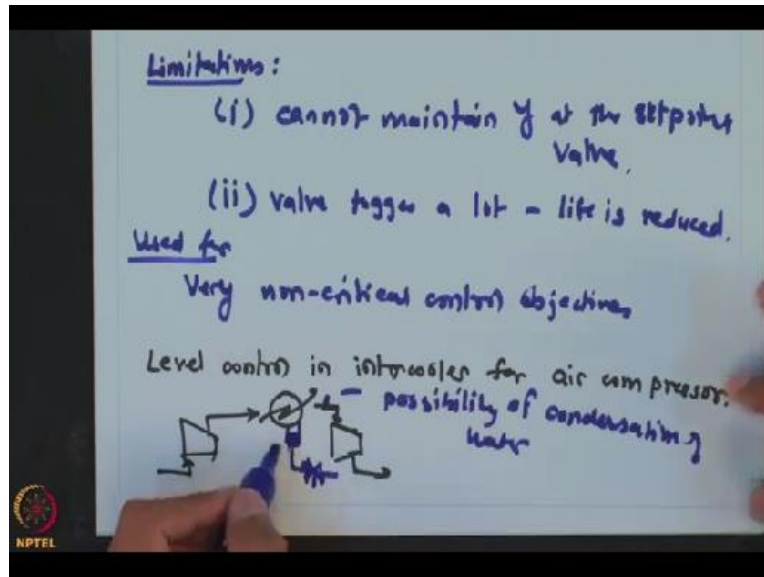 Limitations:
(i) cannot maintain y at the setpoint
value.
(ii) valve toggles a lot – life is reduced.
Used for
Very non-critical control objectives
Level control in intercooler for air compressor.
– possibility of condensation of
water
NPTEL